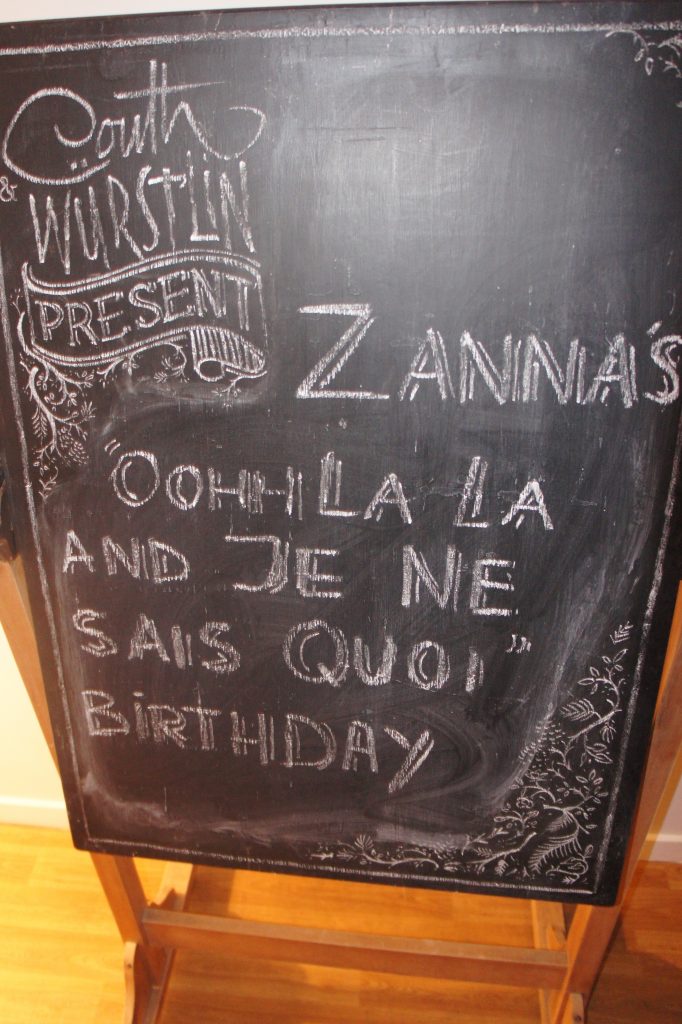 Couth
& WURST'LIN
PRESENT
ZANNA'S
"OOHH LA LA
AND JE NE
SAIS QUOI"
BIRTHDAY